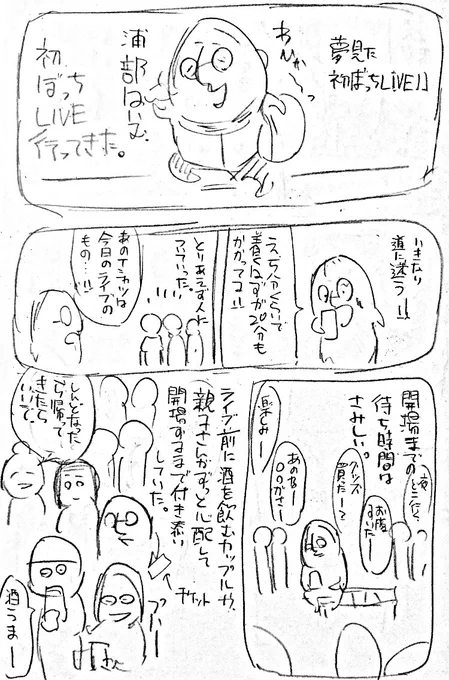 夢見た
初ぼっちLIVE!!
浦部はいむ、
初
ぼっち
LIVE
行ってきた。
いきなり
道に迷う!!
5分くらいで
着くはずが20分も
かかってつ!!
とりあえず人に
ついていった。
あのTシャツは
今日のライブの
もの…!!
開場までの
待ち時間は
さみしい。
お腹
すいたー
グッズ
買たーて
あのなー
〇〇がさー
楽しみー
ライブ前に酒を飲むカップルや、
親子さんがずっと心配して
開場するまで付き添い
していた。
しんどなった
ら帰って
きたら
いいで。
チケット
酒うまー